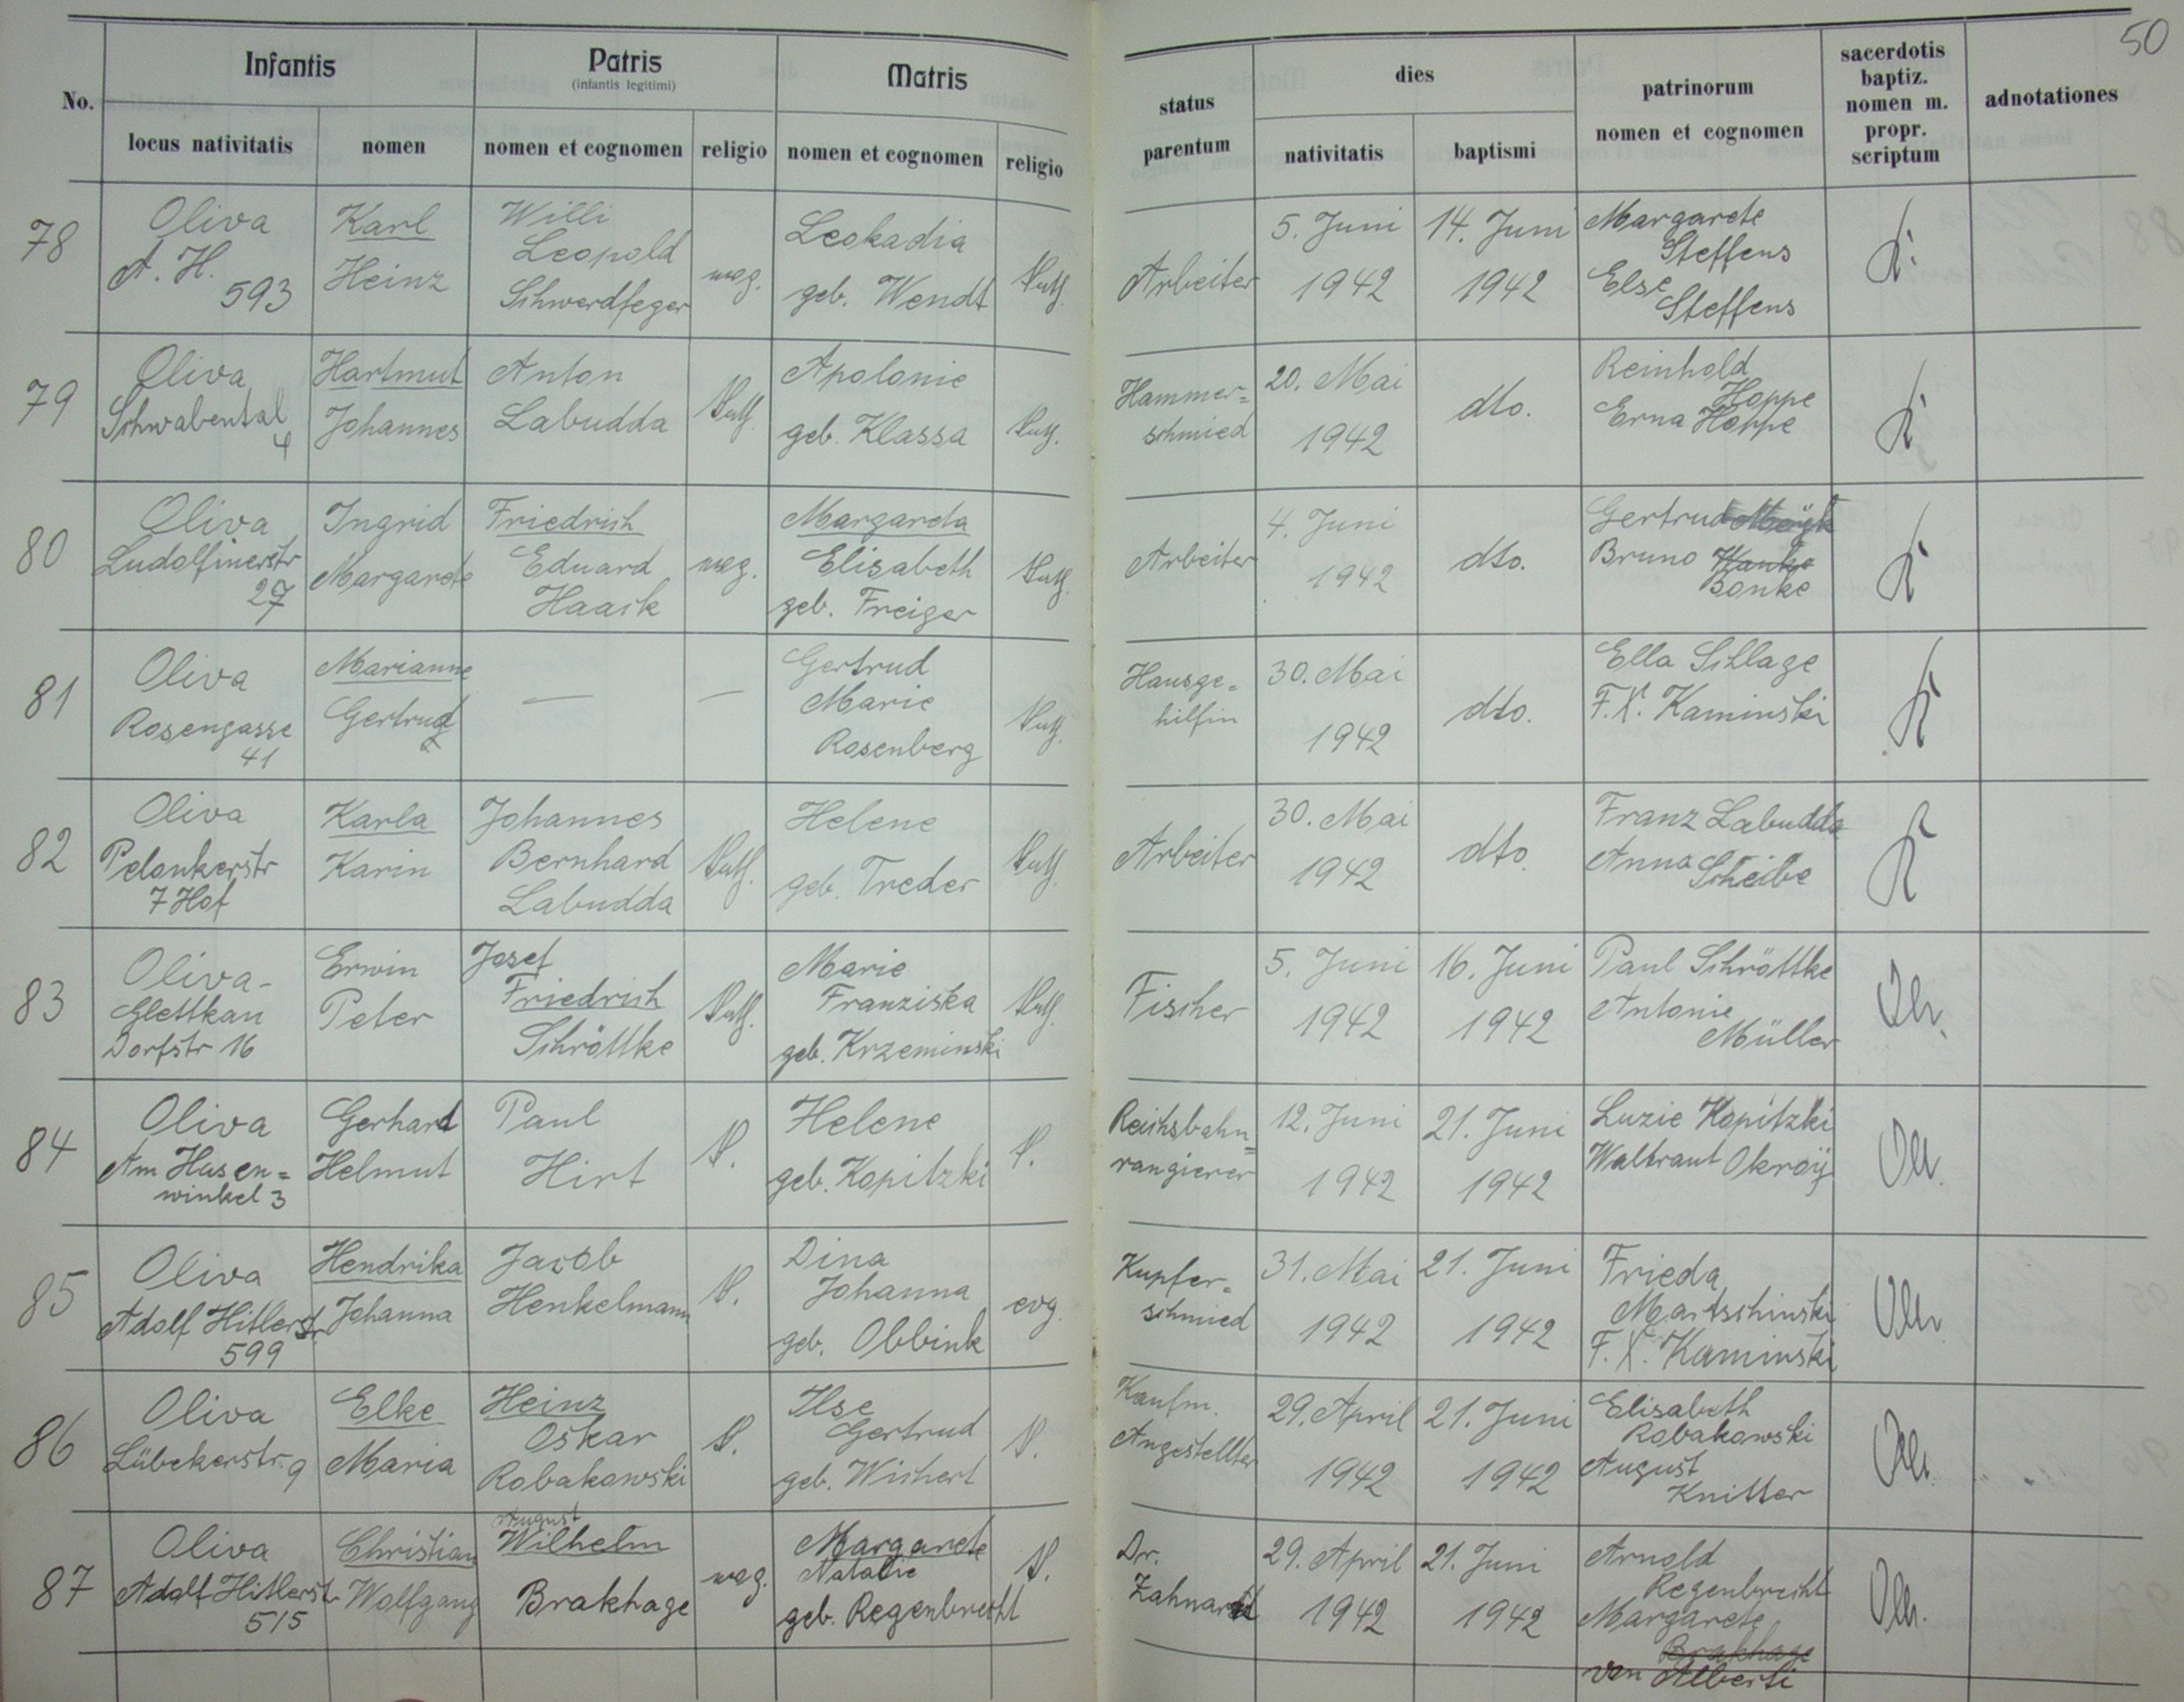 50
No.
Infantis
locus nativitatis
nomen
Patris
(infantis legitimi)
nomen et cognomen
religio
Matris
nomen et cognomen
religio
status
parentum
dies
nativitatis
baptismi
patrinorum
nomen et cognomen
sacerdotis
baptiz.
nomen m.
propr.
scriptum
adnotationes
78
Oliva
A. H.
593
Karl
Heinz
Willi
Leopold
Schwerdfeger
Leokadia
geb. Wendt
kath.
Arbeiter
5. Juni
1942
14. Juni
1942
Margarete
Steffens
Else
Steffens
K
79
Oliva
Schwabental
4
Hartmut
Johannes
Anton
Labudda
kath.
Apolonie
geb. Klassa
kath.
Hammer=
schmied
20. Mai
1942
dto.
Reinhold
Hoppe
Erna Hoppe
K
80
Oliva
Ludolfinerstr
27
Ingrid
Margarete
Friedrich
Eduard
Haack
Margareta
Elisabeth
geb. Freiger
kath.
Arbeiter
4. Juni
1942
dto.
Gertrud
Bruno
Bonke
K
81
Oliva
Rosengasse
41
Marianne
Gertrud
—
—
Gertrud
Marie
Rosenberg
kath.
Hausge=
hilfin
30. Mai
1942
dto.
Ella Schlage
F. X. Kaminski
K
82
Oliva
Pelonkerstr
7 Hof
Karla
Karin
Johannes
Bernhard
Labudda
kath.
Helene
geb. Treder
kath.
Arbeiter
30. Mai
1942
dto.
Franz Labudda
Anna
Scheibe
K
83
Oliva-
Glettkau
Dorfstr 16
Erwin
Peter
Josef
Friedrich
Schröttke
kath.
Marie
Franziska
geb. Krzeminski
kath.
Fischer
5. Juni
1942
16. Juni
1942
Paul Schröttke
Antonie
Müller
84
Oliva
Am Hasen=
winkel 3
Gerhard
Helmut
Paul
Hirt
k.
Helene
geb. Kopitzki
k.
Reichsbahn=
rangierer
12. Juni
1942
21. Juni
1942
Luzie Kopitzki
Waltraut Okroÿ
85
Oliva
Adolf Hitlerstr.
599
Hendrika
Johanna
Jacob
Henkelmann
k.
Dina
Johanna
geb. Obbink
evg.
Kupfer=
schmied
31. Mai
1942
21. Juni
1942
Frieda
Martschinski
F. X. Kaminski
86
Oliva
Lübekerstr. 9
Elke
Maria
Heinz
Oskar
Robakowski
k.
Ilse
Gertrud
geb. Wichert
k.
Kaufm.
Angestellter
29. April
1942
21. Juni
1942
Elisabeth
Robakowski
August
Knitter
87
Oliva
Adolf Hitlerstr.
515
Christian
Wolfgang
August
Wilhelm
Brakhage
Margarete
Natalie
geb. Regenbrecht
k.
Dr.
Zahnarzt
29. April
1942
21. Juni
1942
Arnold
Regenbrecht
Margarete
Brakhage
von Alberti